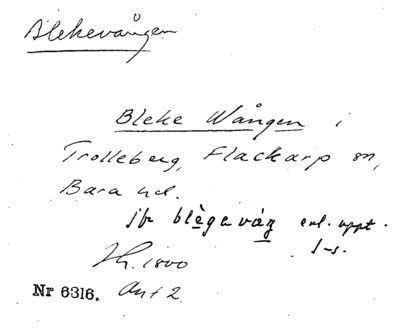 Blekevången
Bleke Wången i
Trolleberg, Flackarp sn,
Bara hd.
jfr blègaváŋ enl. uppt.
Nr 6316. Ant 2